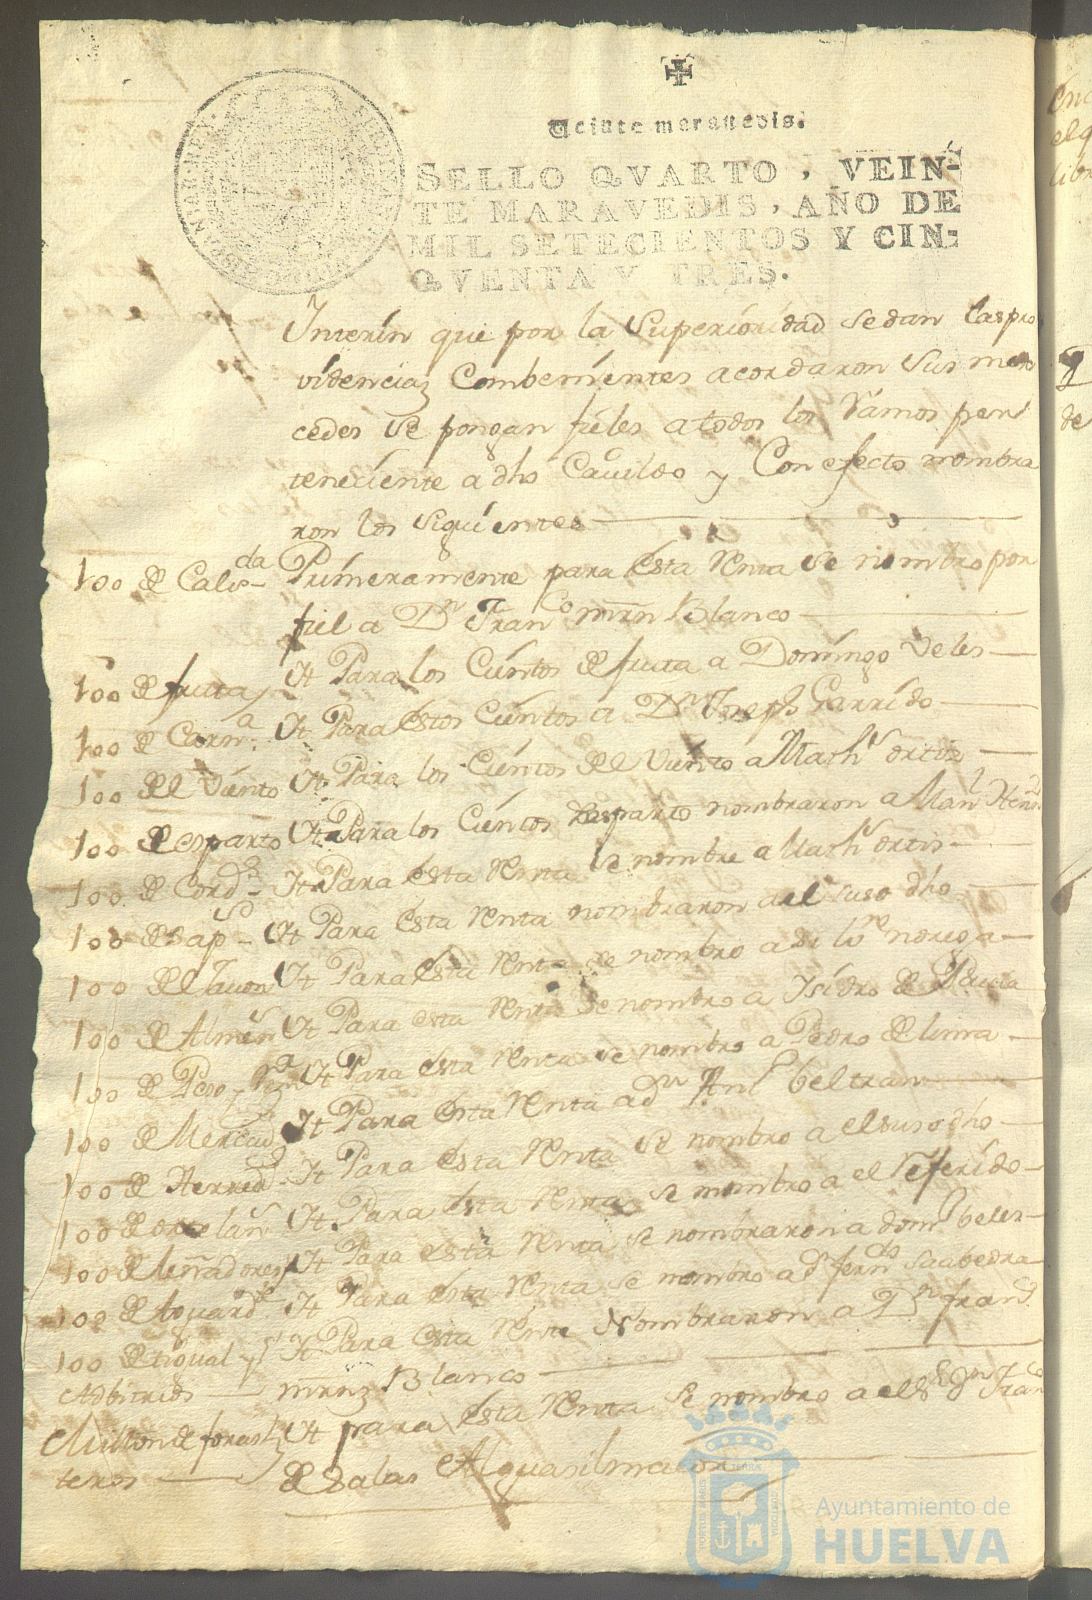 Veinte maravedis.
SELLO QVARTO, VEIN-
TE MARAVEDIS, AÑO DE
MIL SETECIENTOS Y CIN-
QVENTA Y TRES.
Ynterin que por la Superioridad se dan las pro
videncias Combenientes acordaron sus mer
cedes se pongan fieles a todos los Ramos per
teneciente a dho Cavildo y Con efecto nombra
ron los siguientes
100 de Cavs.da Primeramente para esta Renta se nombro por
fiel a Dn Franco mrn Blanco
100 de fruta Yt Para los Cientos de fruta a Domingo Veles
100 de Carn.a Yt Para estos Cientos a Dn Joseph Garrido
100 del Viento Yt Para los Cientos del Viento a Math.s ortiz
100 de esparto Yt Para los Cientos de esparto nombraron a Man.l
100 de Cord.a Yt Para esta Renta se nombre a Math.s ortis
100 de Yt Para esta Renta nombraron a el suso dho
100 del Yt Para esta Renta se nombro a
100 de Almen Yt Para esta Renta se nombro a Ysidro de
100 de Peso y Yt Para esta Renta se nombro a Pedro de lima
100 de Mercad Yt Para esta Renta a dn Ant.o beltran
100 de Herred Yt Para esta Renta se nombro a el suso dho
100 de Yt Para esta Renta se nombro a el Referido
100 de leñadores Yt Para esta Renta se nombraron a dom.o beles
100 de Aguard.te Yt Para esta Renta se nombro a dn fern.do Saabedra
100 de Yt Para esta Renta Nombraron a Dn fran.co
Adbitrios mrnz Blanco
Millon de foras Yt para esta Renta se nombro a el Sr. dn Fran.co
teros de Salas Alguasil maior
Ayuntamiento de
HUELVA